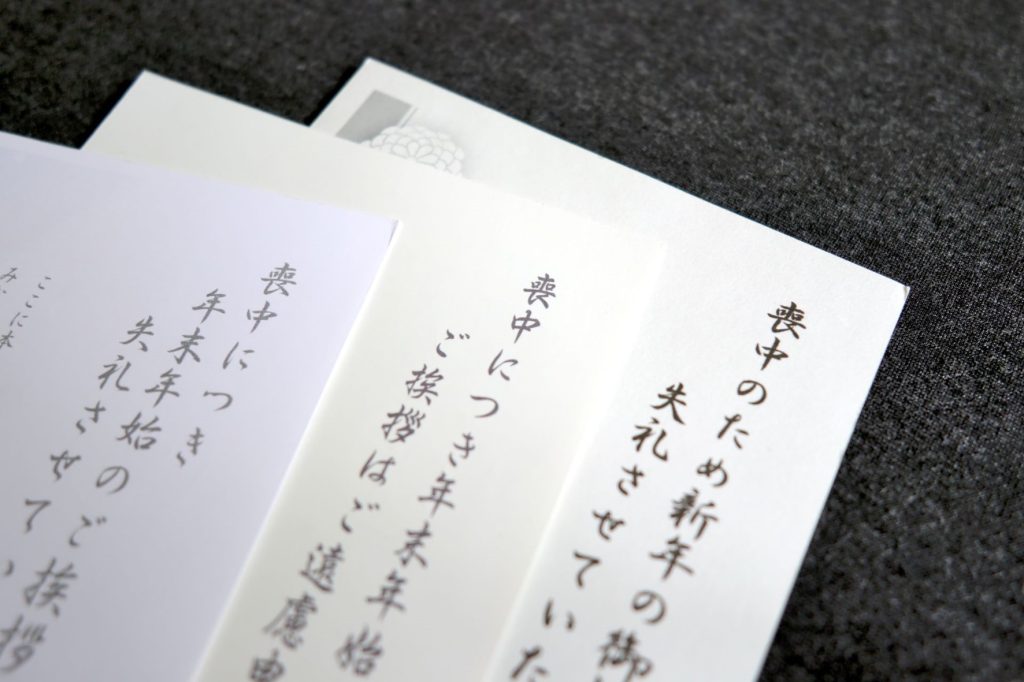 喪中のため新年の御
失礼させていた
喪中につき年末年始
ご挨拶はご遠慮申
喪中につき
年末年始のご挨拶
失礼させてい
ここに本
み